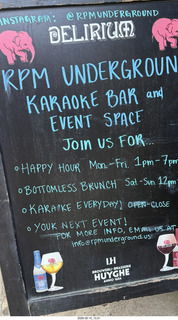 INSTAGRAM: @RPMUNDERGROUND
DELIRIUM
RPM UNDERGROUN
KARAOKE BAR and
EVENT SPACE
JOIN US FOR...
HAPPY HOUR Mon-Fri 1pm-7pm
BOTTOMLESS BRUNCH Sat-Sun 12pm
KARAOKE EVERYDAY! OPEN-CLOSE
YOUR NEXT EVENT!
FOR MORE INFO, EMAIL US AT
info@rpmunderground.us
LH
BROUWERIJ BRASSERIE
HUYGHE